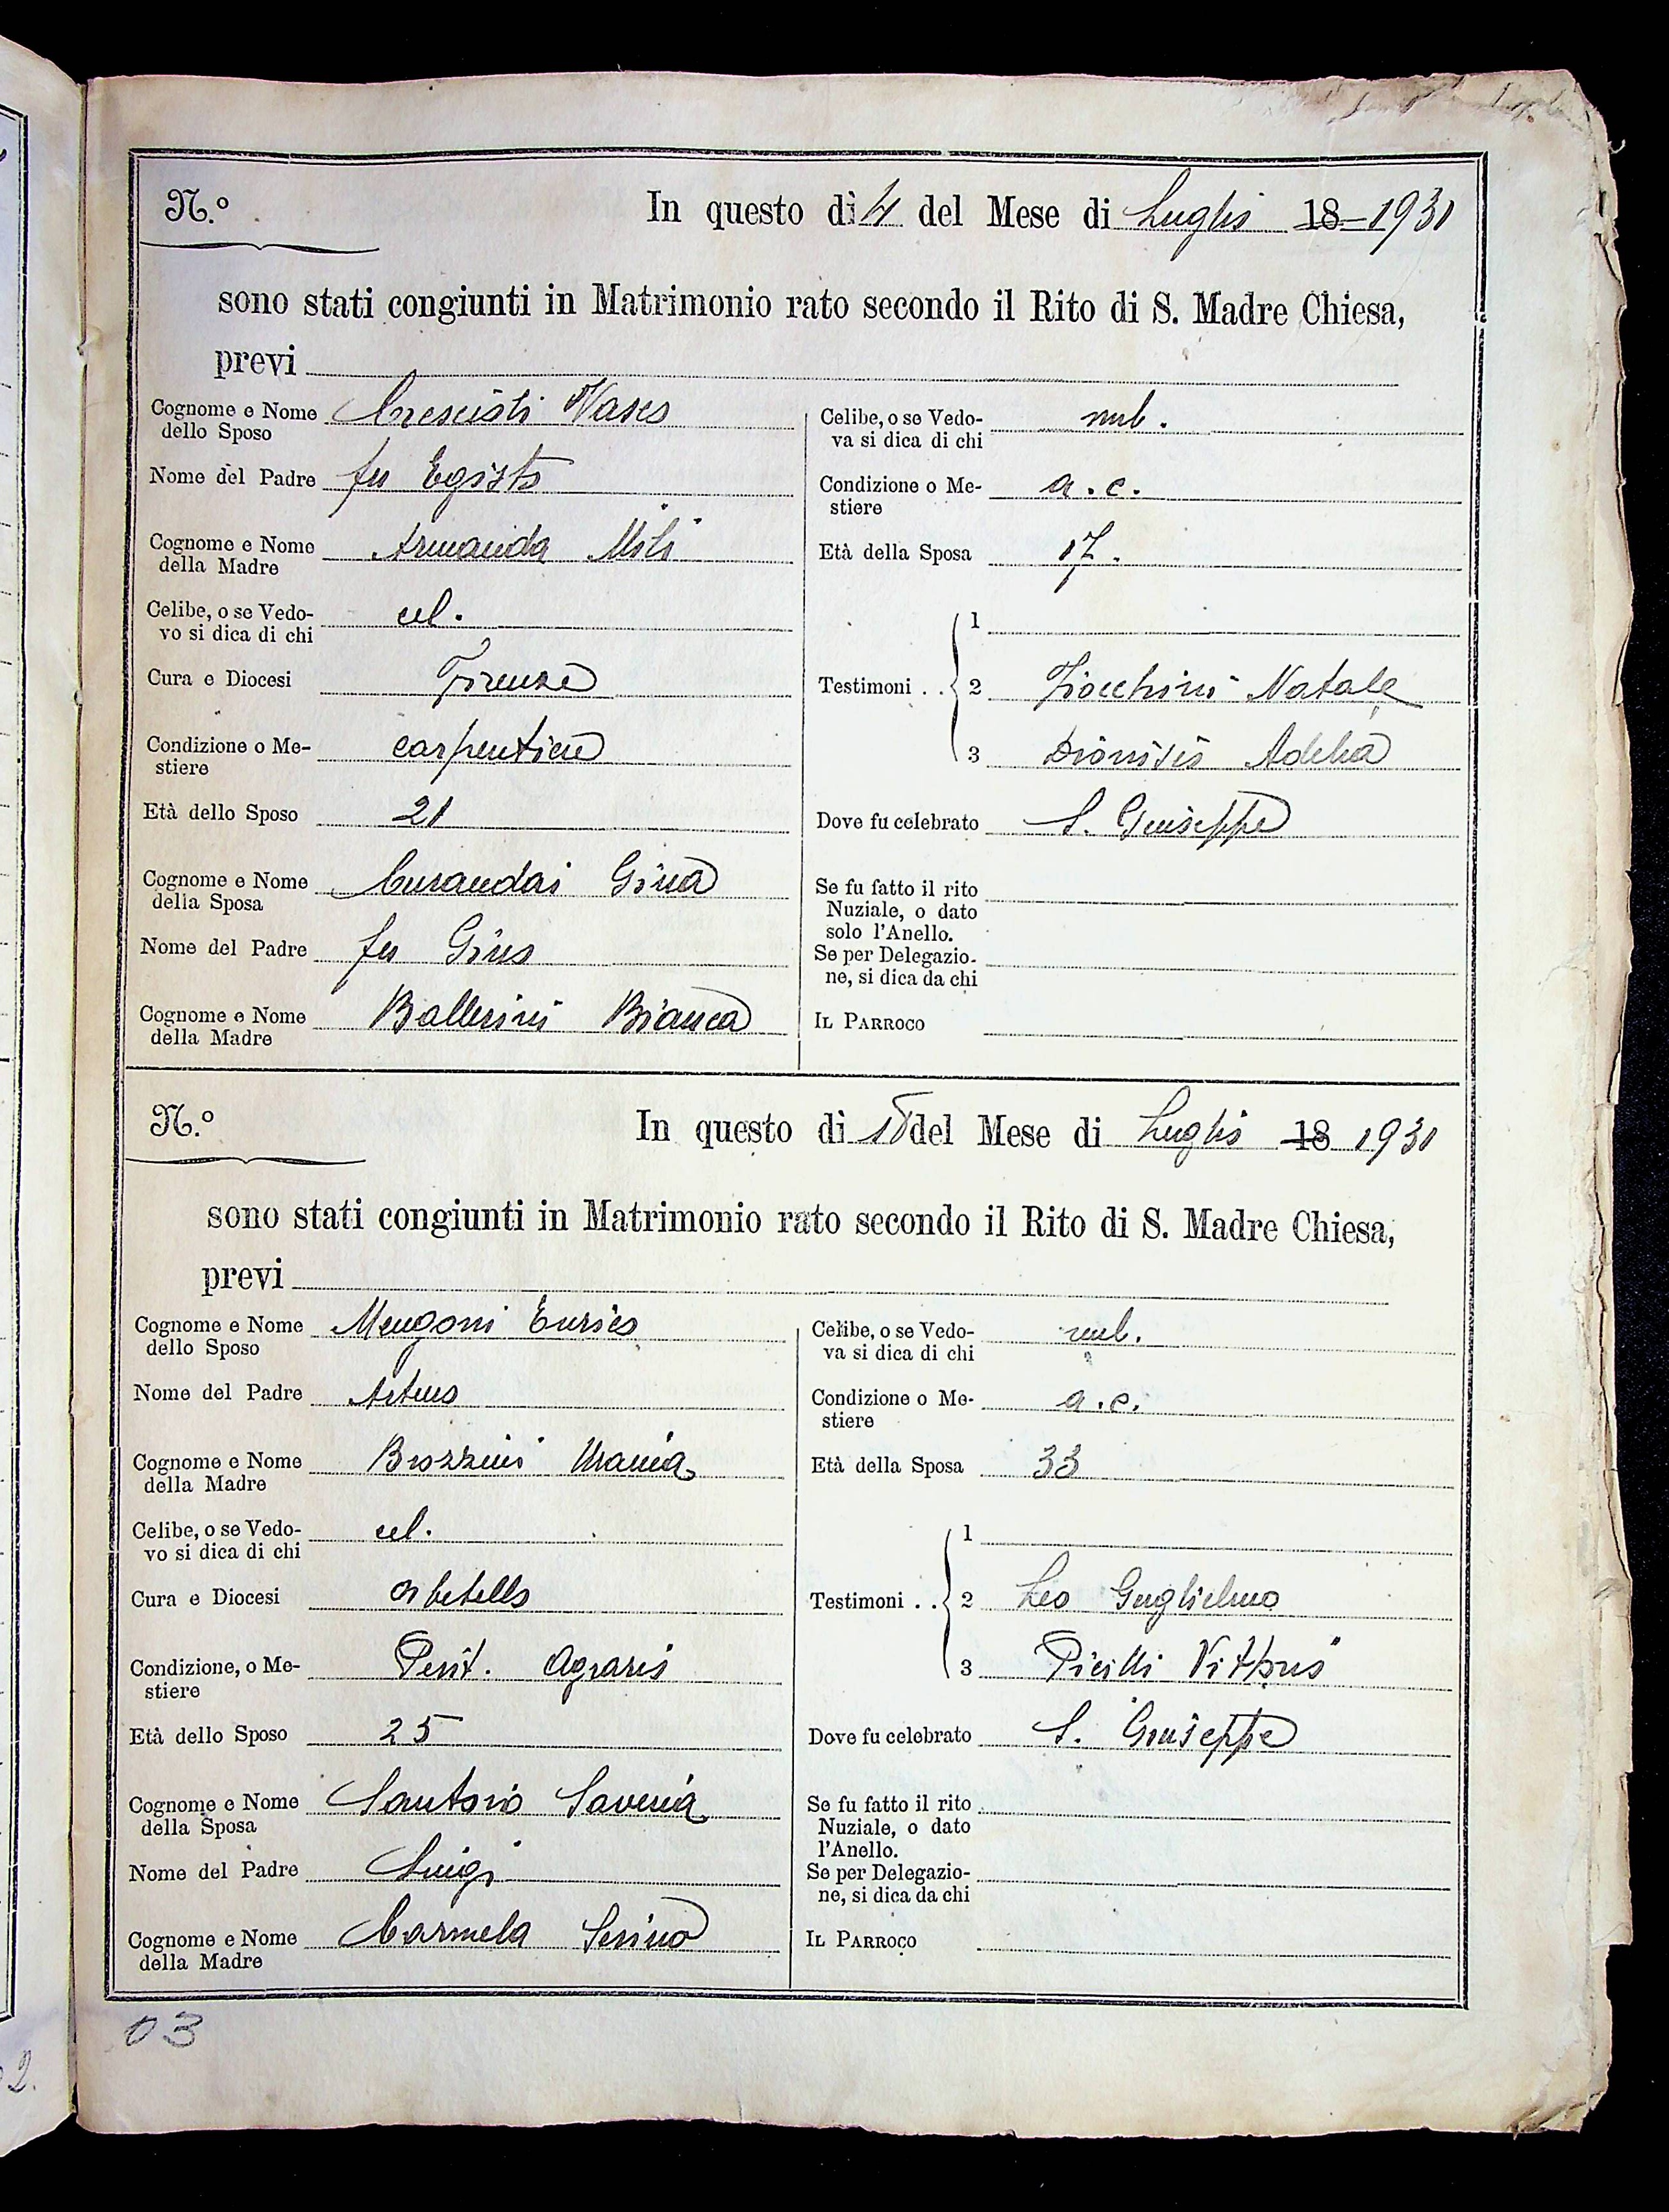 N.º In questo dì 4 del Mese di Luglio 18 1931
sono stati congiunti in Matrimonio rato secondo il Rito di S. Madre Chiesa,
previ
Cognome e Nome
dello Sposo
Nome del Padre fu Egisto
Cognome e Nome Armanda
della Madre
Celibe, o se Vedo- cel.
vo si dica di chi
Cura e Diocesi Firenze
Condizione o Me- carpentiere
stiere
Età dello Sposo 21
Cognome e Nome Gina
della Sposa
Nome del Padre fu Gino
Cognome e Nome Ballerini Bianca
della Madre
Celibe, o se Vedo- nub.
va si dica di chi
Condizione o Me- a.c.
stiere
Età della Sposa 17.
Testimoni . .
1
2 Natale
3 Dionisio Adelia
Dove fu celebrato S. Giuseppe
Se fu fatto il rito
Nuziale, o dato
solo l'Anello.
Se per Delegazio-
ne, si dica da chi
IL PARROCO
N.º In questo dì 18 del Mese di Luglio 18 1931
sono stati congiunti in Matrimonio rato secondo il Rito di S. Madre Chiesa,
previ
Cognome e Nome Mengoni Enrico
dello Sposo
Nome del Padre Arturo
Cognome e Nome Brozzini Urania
della Madre
Celibe, o se Vedo- cel.
vo si dica di chi
Cura e Diocesi Orbetello
Condizione, o Me- Perit. Agrario
stiere
Età dello Sposo 25
Cognome e Nome Santoro Saveria
della Sposa
Nome del Padre Luigi
Cognome e Nome Carmela Serino
della Madre
Celibe, o se Vedo- nub.
va si dica di chi
Condizione o Me- a.c.
stiere
Età della Sposa 33
Testimoni . .
1
2 Leo Guglielmo
3 Vittorio
Dove fu celebrato S. Giuseppe
Se fu fatto il rito
Nuziale, o dato
l'Anello.
Se per Delegazio-
ne, si dica da chi
IL PARROCO
03
2.